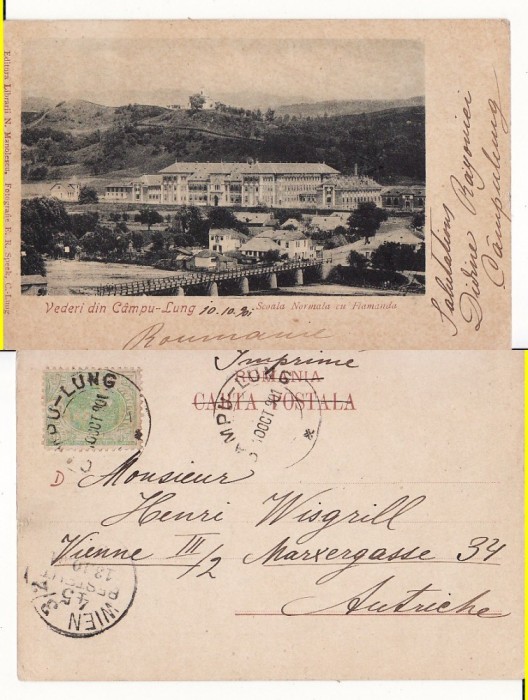 Editura Librarii N. Manolescu. Fotografie E. R. Speck, C.-Lung
Vederi din Câmpu-Lung 10.10.901 Scoala Normala cu Flamanda
Roumanie
Câmpulung
Imprimé
ROMANIA
CARTA POSTALA
CÂMPU-LUNG
10 OCT 901
CÂMPU-LUNG
10 OCT 901
D Monsieur
Henri Wisgrill
Vienne III/2 Marxergasse 34
Autriche
WIEN 3/2
45